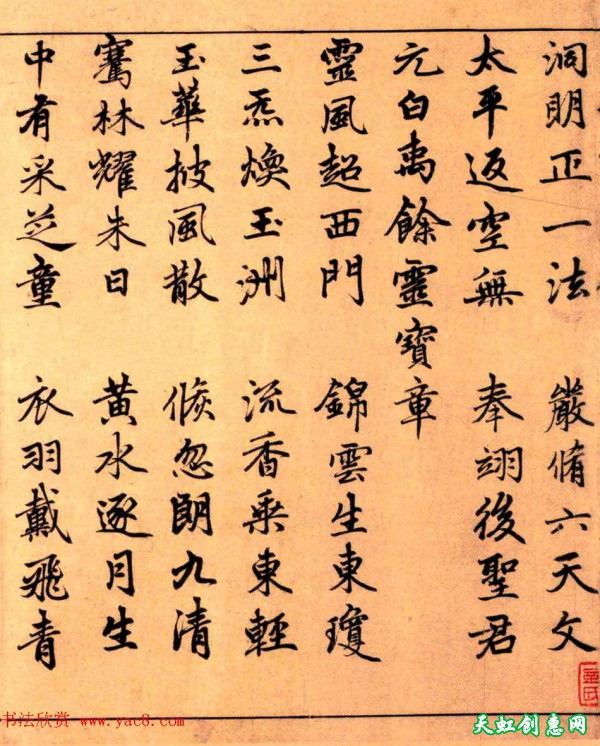 洞明正一法 嚴脩六天文
太平返空無 奉翊後聖君
元白禹餘靈寶章
靈風超西門 錦雲生東瓊
三炁煥玉洲 流香乘東輕
玉華披風散 倏忽朗九清
騫林耀朱日 黃水逐月生
中有采芝童 衣羽戴飛青
书法欣赏 www.yac8.com
天虹创意网